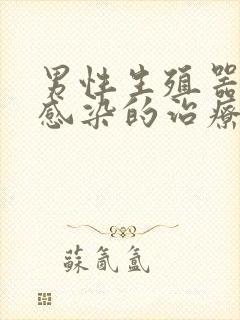 男性生殖器
感染的治療
蘇氤氲